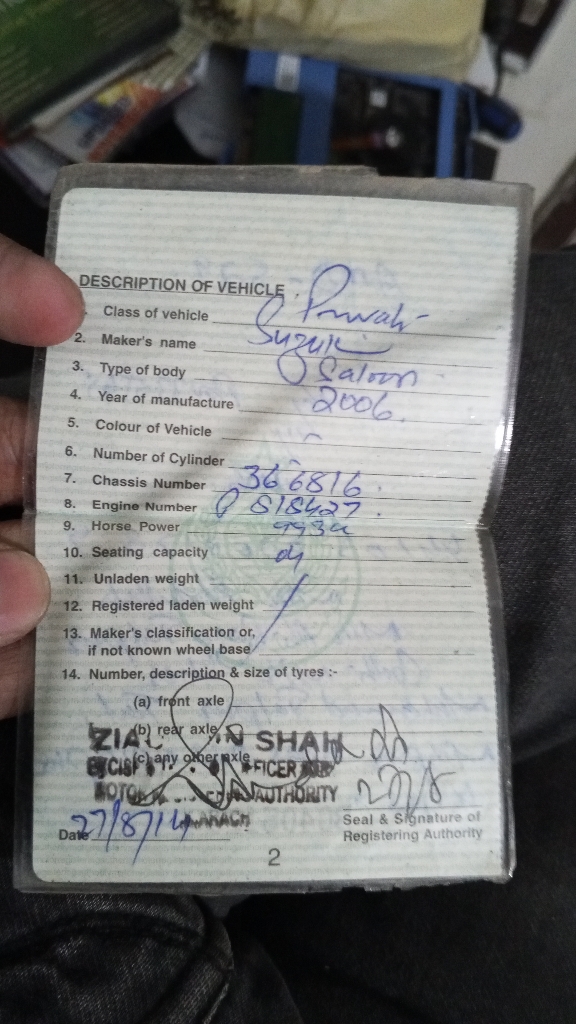 DESCRIPTION OF VEHICLE
Class of vehicle Privat
2. Maker's name Suzuki
3. Type of body Saloon
4. Year of manufacture 2006.
5. Colour of Vehicle
6. Number of Cylinder
7. Chassis Number 366816.
8. Engine Number 818427.
9. Horse Power
10. Seating capacity 04
11. Unladen weight
12. Registered laden weight
13. Maker's classification or,
if not known wheel base
14. Number, description & size of tyres :-
(a) front axle
(b) rear axle
SHAH
(c) any other axle
AUTHORITY
27/8
Seal & Signature of
Registering Authority
Date 27/8/14
2